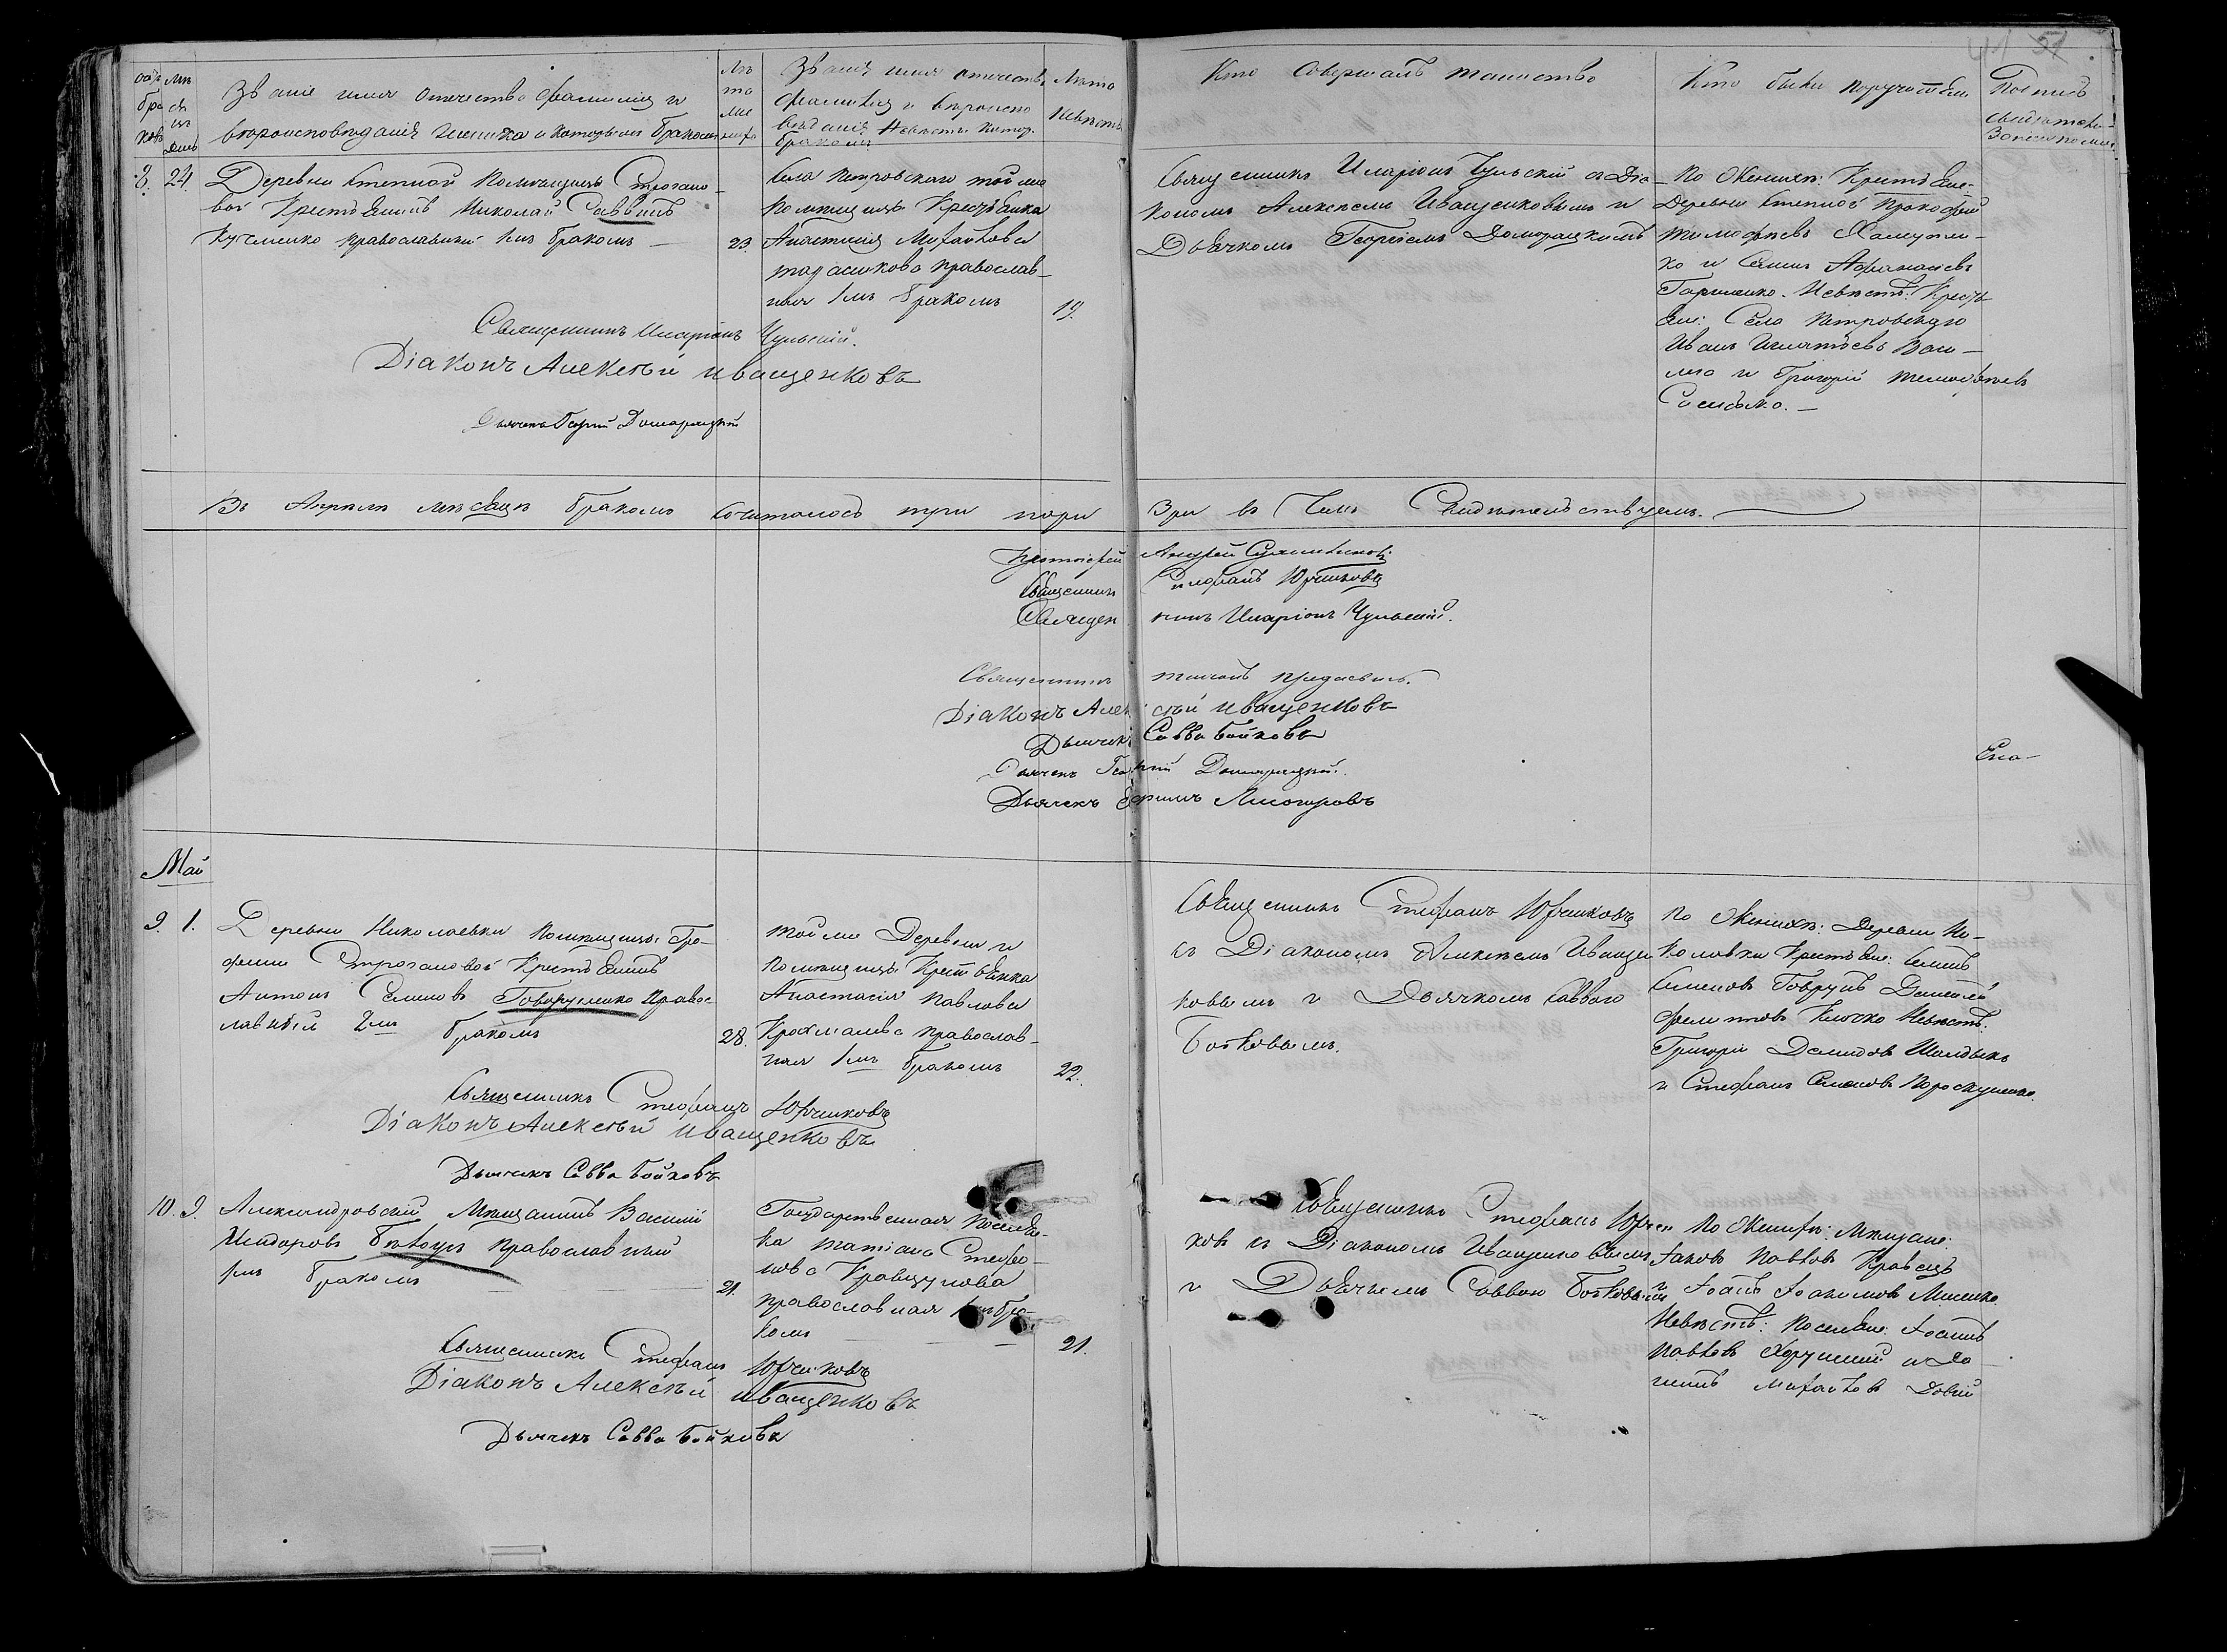 51
Звание имя отечество фамилия и
вѣроисповѣдания Жениха и которымъ Бракомъ
Лѣ
та
же
ниха
Звания имя отечество
фамилия и вѣроиспо
вѣдания Невѣсты котор.
бракомъ
Лѣта
Невѣсты
Кто совершалъ таинство
Кто были поручители
Подпись
свидѣтелей
8. 24. Деревни Степной Помѣщицы Строгано-
вой Крестьянинъ Николай Саввинъ
Кученко православный 1мъ бракомъ — 23.
Села Петровскаго той же
Помѣщицы Крестьянка
Анастасия Михайлова
православ-
ная 1мъ бракомъ 19.
Священникъ Иларіонъ Чульскій съ Діа-
кономъ Алексѣемъ Иващенковымъ и
Дьячкомъ Георгіемъ Доморацкимъ
По Женихѣ: Крестьяне-
Деревни Степной Прокофий
Тимофѣевъ
ко и Семенъ Афанасиевъ
Невѣстѣ: Крестья
не: Села Петровскаго
Иванъ Игнатьевъ
и Григорий Тимофѣевъ
Священникъ Иларіонъ Чульскій.
Діаконъ Алексѣй Иващенковъ
Дьячекъ Георгій Доморацкій
Въ Апрелѣ месяцѣ бракомъ сочиталось три пары 3ри въ Чемъ Свидѣтельствуемъ.
Протоіерей Андрей
Священникъ Стефанъ Юрченковъ
Священникъ Иларіонъ Чульскій.
Священникъ
Діаконъ Алексѣй Иващенковъ
Дьячекъ Савва Бойковъ
Дьячекъ Георгій Доморацкій.
Дьячекъ Ефимъ Лисогоровъ
Май
9. 1. Деревни Николаевки Помѣщицы Гра-
фини Строгановой Крестьянинъ
Антонъ Семеновъ Говорущенко Правос-
лавный 2мъ бракомъ 28.
той же Деревни и
Помѣщицы Крестьянка
Анастасія Павлова
Крохмалева православ-
ная 1мъ бракомъ 22.
Священникъ Стефанъ Юрченковъ
съ Діакономъ Алексѣемъ Иващен
ковымъ и Дьячкомъ Саввою
Бойковымъ.
По Женихѣ: Деревни Ни-
колаевки Крестьяне:
Семеновъ
Клочко Невѣстѣ:
Григорій Демидовъ
и Стефанъ Семеновъ
Священникъ Стефанъ Юрченковъ
Діаконъ Алексѣй Иващенковъ
Дьячекъ Савва Бойковъ
10. 9. Александровскій Мѣщанинъ Василій
Исидоровъ православный
1мъ бракомъ 21.
Государственная Поселян-
ка Татіана Стефа-
нова Кравцунова
православная 1мъ бра-
комъ 21.
Священникъ Стефанъ Юрчен
ковъ съ Діакономъ Иващенковымъ
и Дьячкомъ Саввою Бойковымъ
По Женихѣ: Мѣщане:
Іаковъ Павловъ Кравецъ
и Іоаннъ Іоакимовъ
Невѣстѣ: Поселяне: Іоаннъ
Павловъ
Михайловъ
Священникъ Стефанъ Юрченковъ
Діаконъ Алексѣй Иващенковъ
Дьячекъ Савва Бойковъ